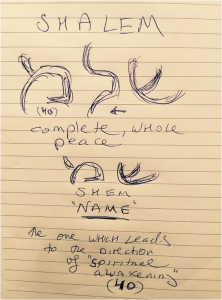 SHALEM
שלמ
(40) ←
complete, whole
peace
שמ
SHEM
"NAME"
The one WHICH LEADS
to the DIRECTION
of "SPIRITUAL
awakening"
(40)